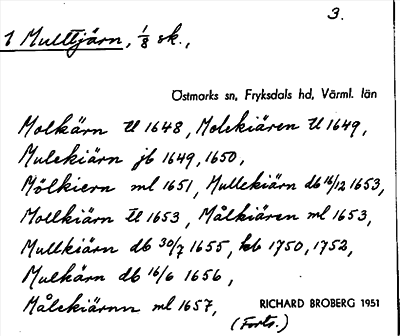 3.
1 Multtjärn, 1/8 sk.,
Östmarks sn, Fryksdals hd, Värml. län
Molkärn ÿl 1648, Molckiären ÿl 1649,
Mulckiärn jb 1649, 1650,
Mölkiern ml 1651, Mullckiärn db 16/12 1653,
Mollkiärn ÿl 1653, Målkiären ml 1653,
Mullkiärn db 30/7 1655, kb 1750, 1752,
Mulkärn db 16/6 1656,
Målckiärnn ml 1657,
RICHARD BROBERG 1951
(Forts.)